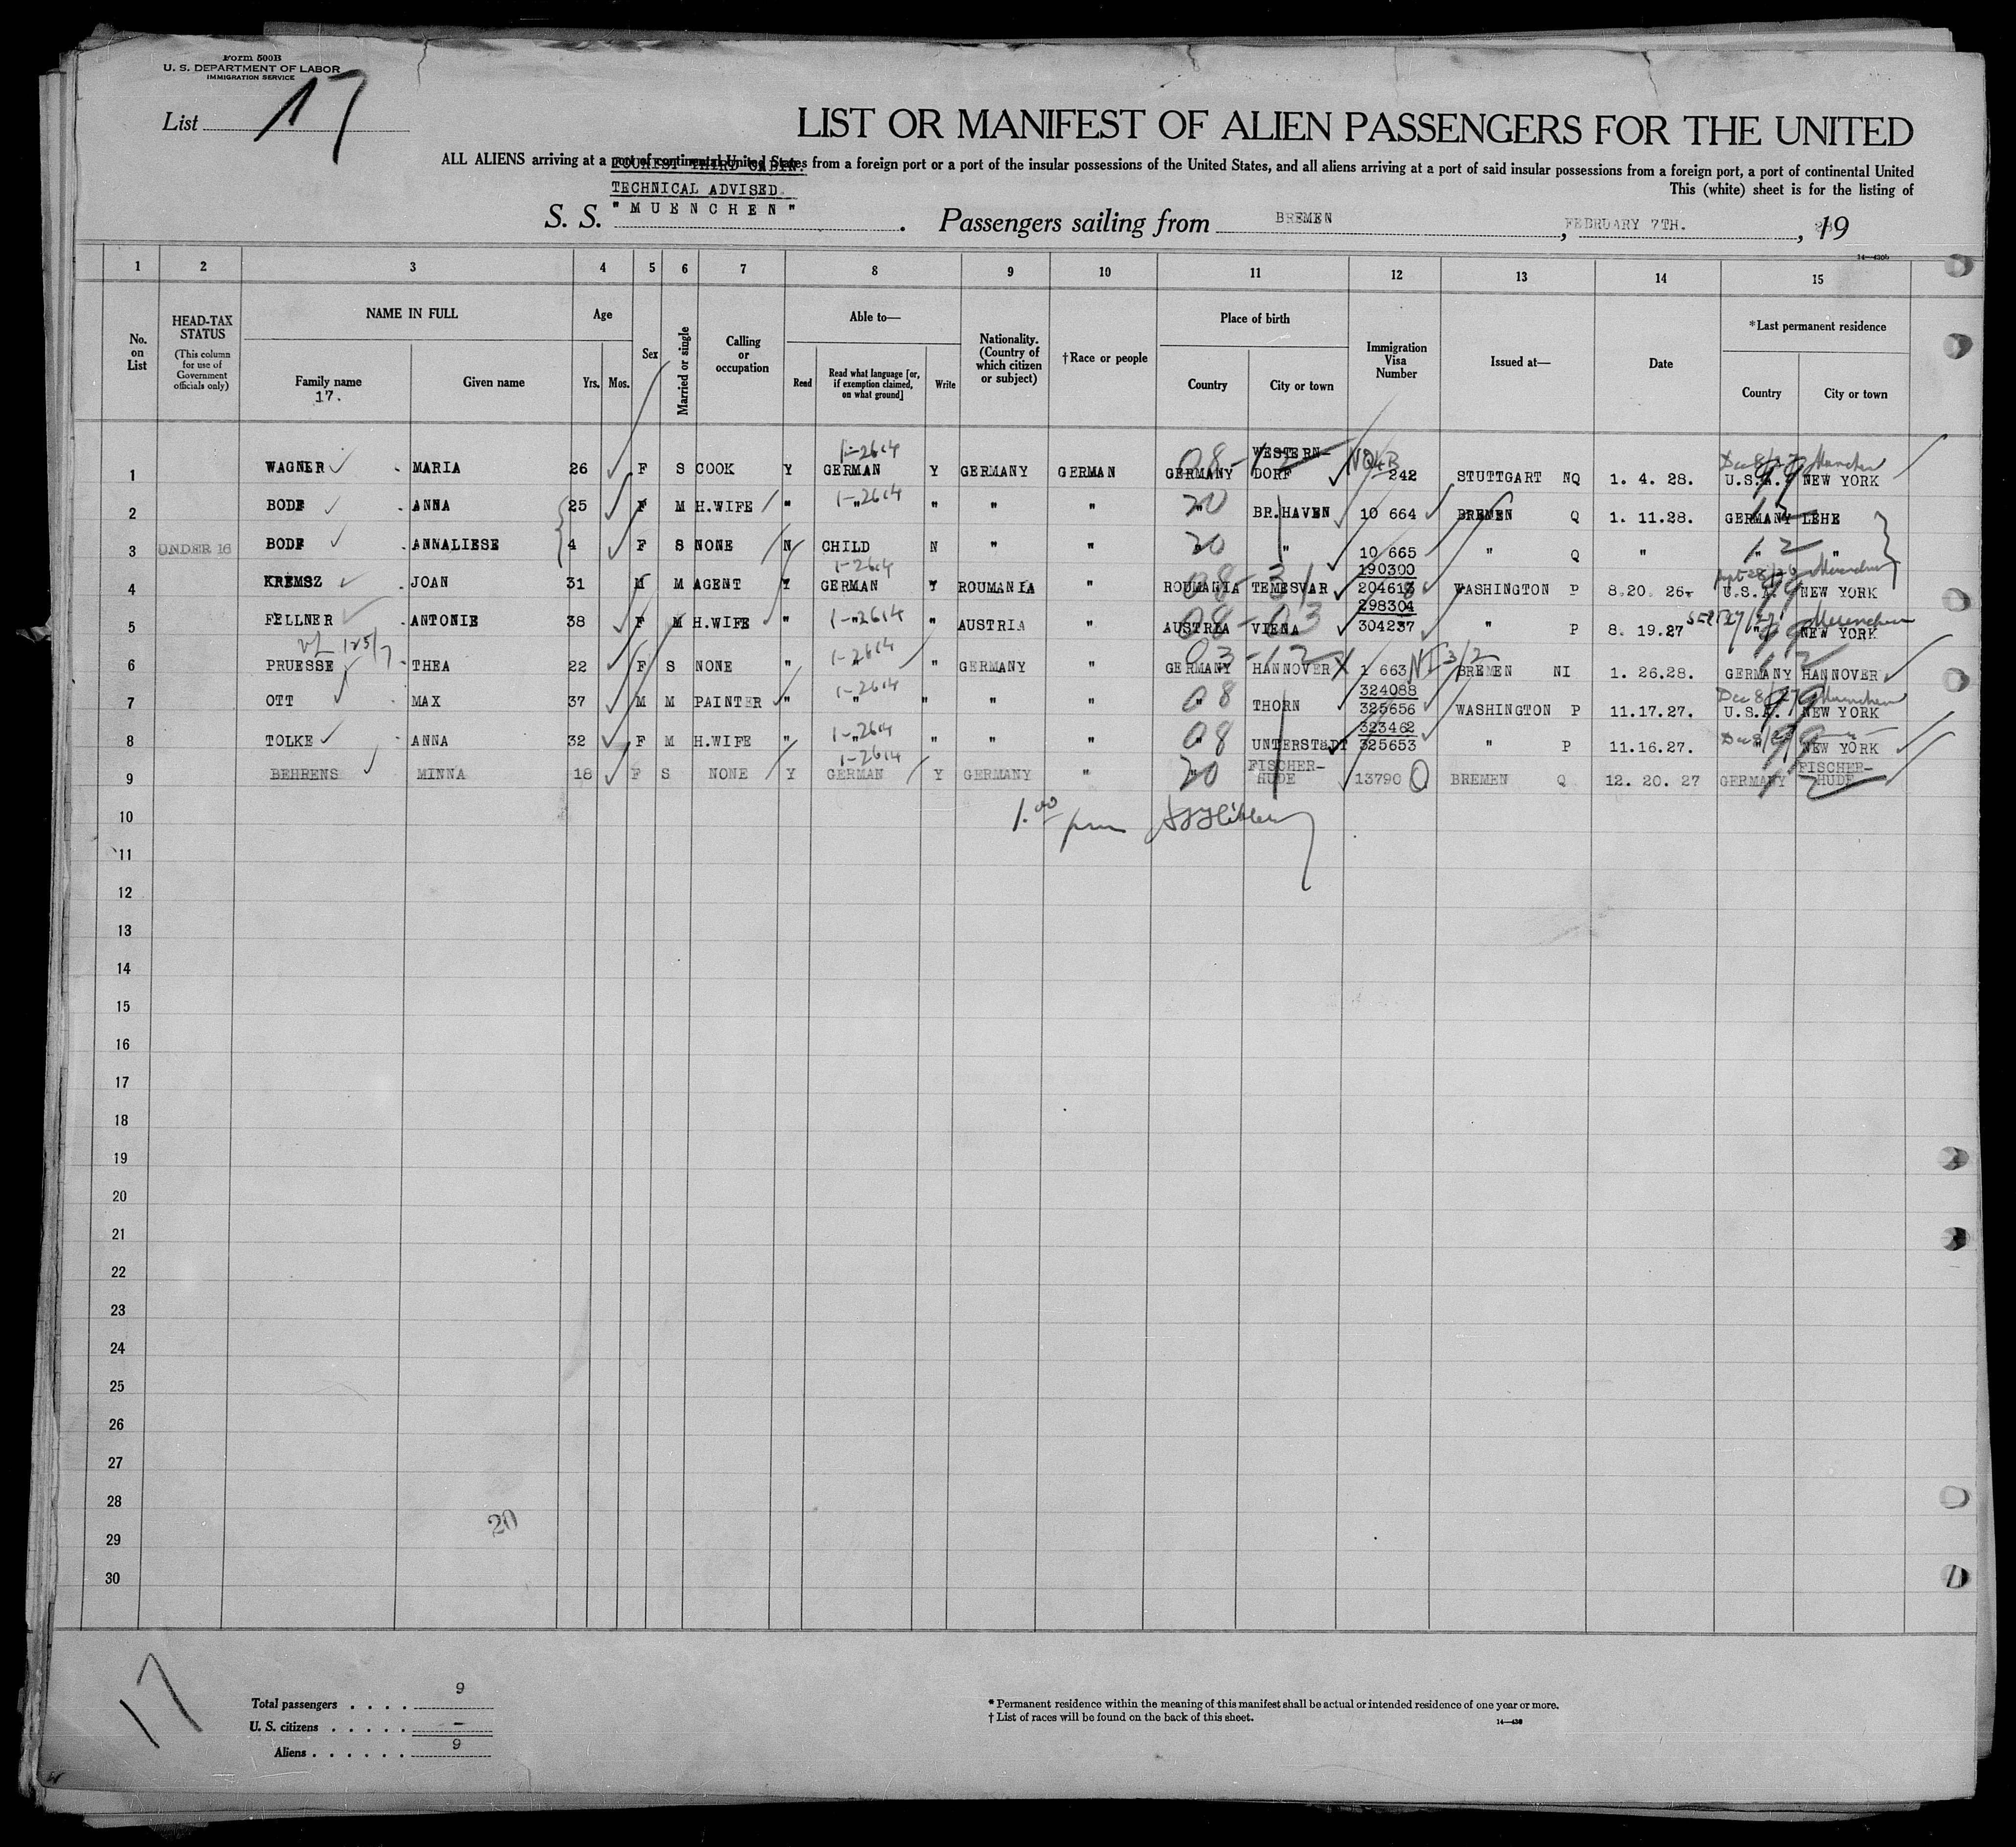 Form 500B
U. S. DEPARTMENT OF LABOR
IMMIGRATION SERVICE
List 17
LIST OR MANIFEST OF ALIEN PASSENGERS FOR THE UNITED
ALL ALIENS arriving at a port of continental United States from a foreign port or a port of the insular possessions of the United States, and all aliens arriving at a port of said insular possessions from a foreign port, a port of continental United
TOURIST THIRD CABIN.
TECHNICAL ADVISED.
This (white) sheet is for the listing of
S. S. "MUENCHEN". Passengers sailing from BREMEN, FEBRUARY 7TH., 1928
14—430b
1 2 3 4 5 6 7 8 9 10 11 12 13 14 15
No. on List
HEAD-TAX STATUS
(This column for use of Government officials only)
NAME IN FULL
Family name
17.
Given name
Age
Yrs. Mos.
Sex
Married or single
Calling or occupation
Able to—
Read
Read what language [or, if exemption claimed, on what ground]
Write
Nationality. (Country of which citizen or subject)
†Race or people
Place of birth
Country
City or town
Immigration Visa Number
Issued at—
Date
*Last permanent residence
Country
City or town
1 WAGNER MARIA 26 F S COOK Y 1-2614 GERMAN Y GERMANY GERMAN GERMANY 08-12 WESTERN-DORF NQ4B 242 STUTTGART NQ 1. 4. 28. Dec 8/27 Munchen U.S.A. 99 NEW YORK
2 BODE ANNA 25 F M H.WIFE " 1-2614 " " " " " 20 BR.HAVEN 10 664 BREMEN Q 1. 11.28. GERMANY 12 LEHE
3 UNDER 16 BODE ANNALIESE 4 F S NONE N CHILD N " " " 20 " 10 665 " Q " " 12 "
4 KREMSZ JOAN 31 M M AGENT Y 1-2614 GERMAN Y ROUMANIA " ROUMANIA 08-31 TEMESVAR 190300 204613 WASHINGTON P 8.20. 26. Sept 28/26 Muenchen U.S.A. 99 NEW YORK
5 FELLNER ANTONIE 38 F M H.WIFE " 1-2614 " " AUSTRIA " AUSTRIA 08-03 VIENA 298304 304237 " P 8. 19.27 SEPT 27/27 Muenchen " 99 NEW YORK
125/7
6 PRUESSE THEA 22 F S NONE " 1-2614 " " GERMANY " GERMANY 03-12 HANNOVER 1 663 NI 3/2 BREMEN NI 1. 26.28. GERMANY 12 HANNOVER
7 OTT MAX 37 M M PAINTER " 1-2614 " " " " " 08 THORN 324088 325656 WASHINGTON P 11.17.27. Dec 8/27 Munchen U.S.A. 99 NEW YORK
8 TOLKE ANNA 32 F M H.WIFE " 1-2614 " " " " " 08 UNTERSTEDT 323462 325653 " P 11.16.27. Dec 8/27 " 99 NEW YORK
9 BEHRENS MINNA 18 F S NONE Y 1-2614 GERMAN Y GERMANY " " 20 FISCHER-HUDE 13790 Q BREMEN Q 12. 20. 27 GERMANY 12 FISCHER-HUDE
10 1.00
11
12
13
14
15
16
17
18
19
20
21
22
23
24
25
26
27
28
20
29
30
17
Total passengers . . . . 9
U. S. citizens . . . . . —
Aliens . . . . . . 9
* Permanent residence within the meaning of this manifest shall be actual or intended residence of one year or more.
† List of races will be found on the back of this sheet.
14—430